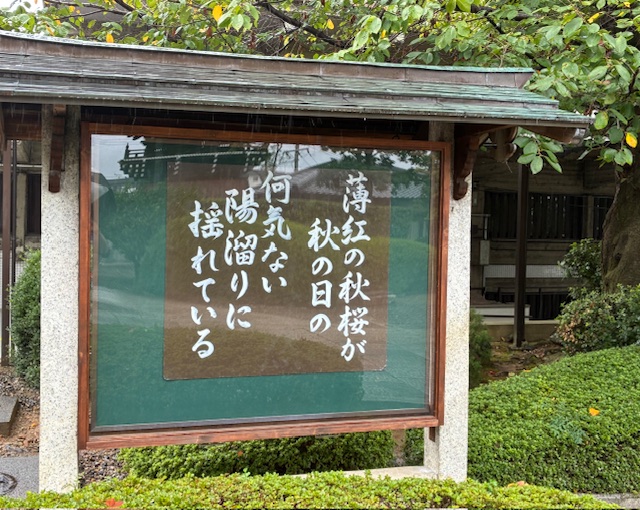 薄紅の秋桜が
秋の日の
何気ない
陽溜りに
揺れている